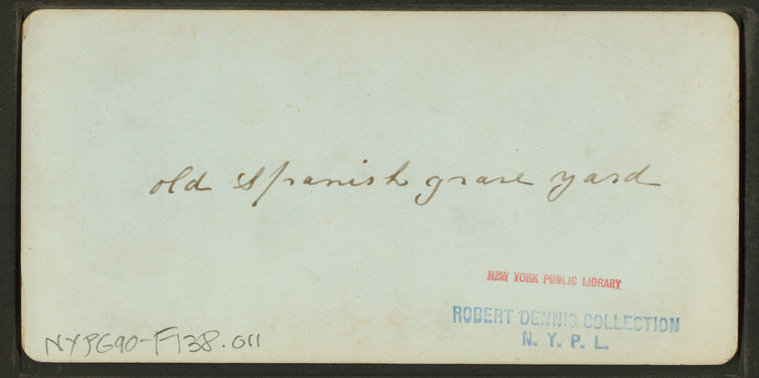 old Spanish grave yard
NEW YORK PUBLIC LIBRARY
ROBERT DENNIS COLLECTION
N. Y. P. L.
NYPG90-F138.011